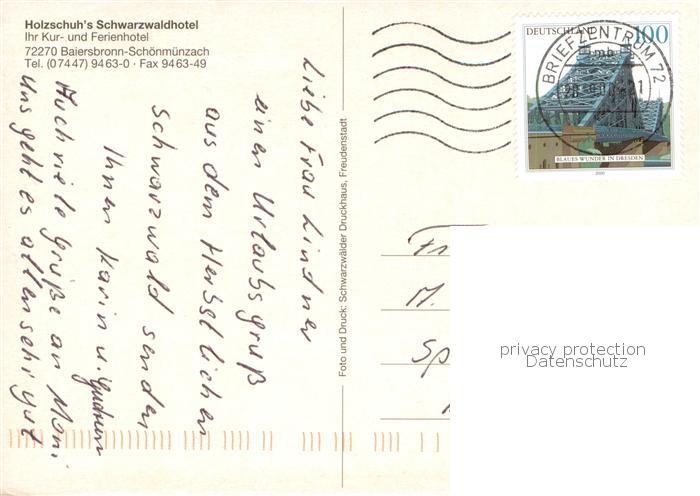 Holzschuh's Schwarzwaldhotel
Ihr Kur- und Ferienhotel
72270 Baiersbronn-Schönmünzach
Tel. (07447) 9463-0 · Fax 9463-49
Liebe Frau Lindner
einen Urlaubsgruß
aus dem Herbstlichen
Schwarzwald senden
Ihnen Karin u. Gudrun
Auch viele Grüße an Moni
Uns geht es allen sehr gut
Foto und Druck: Schwarzwälder Druckhaus, Freudenstadt
DEUTSCHLAND 100
BRIEFZENTRUM 72
BLAUES WUNDER IN DRESDEN
2000
M.
Sp
privacy protection
Datenschutz